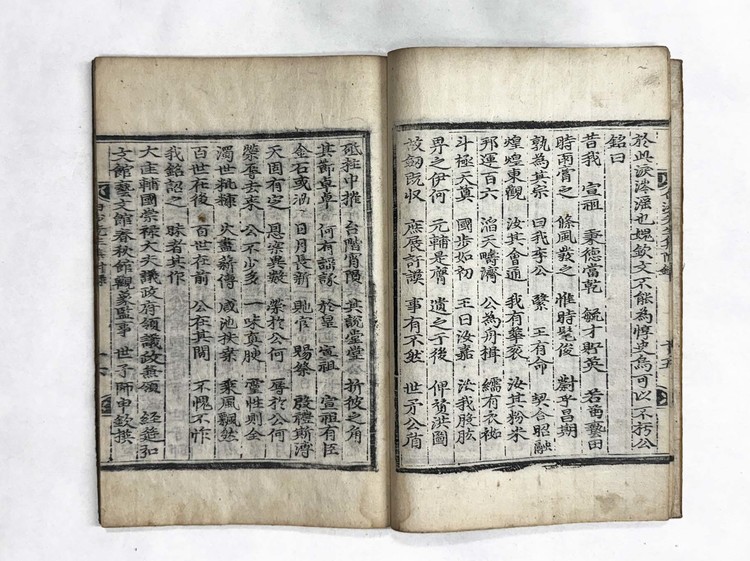 於此淚滂沱也媿欽文不能為惇史焉可以不朽公
銘曰
昔我 宣祖 秉德當乾 毓才貯英 若菑藝田
時雨膏之 條風發之 惟時髦俊 對乎昌期
孰為其宗 曰我李公 繄 王有命 契合昭融
煌煌東觀 汝其會通 我有華袞 汝其粉米
邦運百六 滔天疇濟 公為舟楫 繻有衣袽
斗極天奠 國步如初 王曰汝嘉 汝我股肱
畀之伊何 元輔是膺 遺之于後 俾贊洪圖
故劒既収 庶展訏謨 事有不然 世矛公盾
砥柱中摧 台階宵隕 其說堂堂 折彼之角
其節卓卓 何有謠諑 於皇 宣祖 宣祖有臣
金石或泐 日月長新 貤官 賜筞 殷禮斯溥
天固有定 恩寧異數 榮於公何 辱於公何
榮辱去來 公不少多 一味真腴 靈性則全
濁世秕糠 火盡薪傳 咸池扶桑 乘風飄然
百世在後 百世在前 公在其間 不愧不怍
我銘詔之 昧者其作
大匡輔國崇祿大夫議政府領議政兼領 經筵弘
文館藝文館春秋館觀象監事 世子師申欽撰